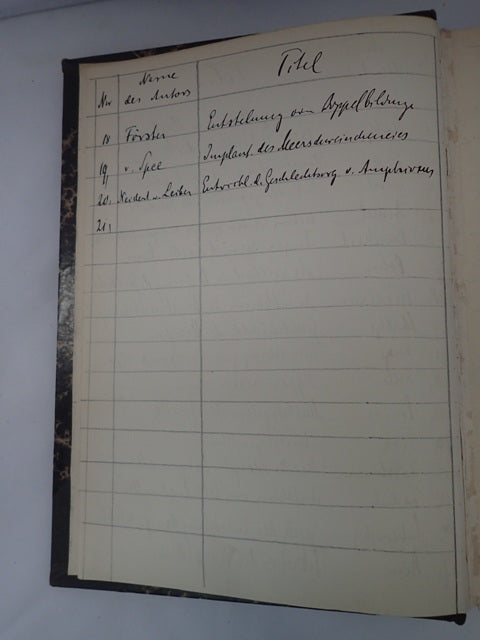 Nr Name des Autors Titel
18 Förster Entstehung von Doppelbildunge
19, v. Spee Implant. des Meerschweincheneies
20, Neidert u. Leiber Entwickl. d. Geschlechtsorg v. Amphioxus
21,